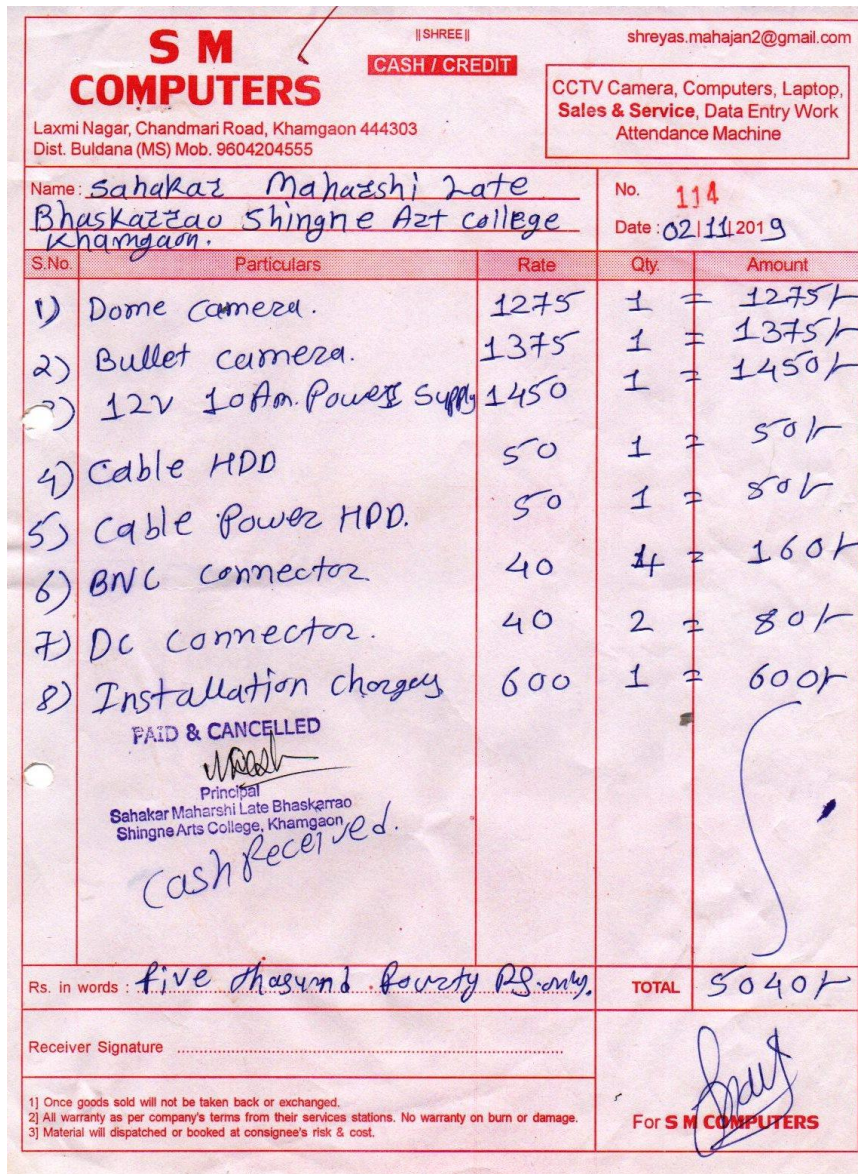 S M
COMPUTERS
Laxmi Nagar, Chandmari Road, Khamgaon 444303
Dist. Buldana (MS) Mob. 9604204555
||SHREE||
CASH / CREDIT
shreyas.mahajan2@gmail.com
CCTV Camera, Computers, Laptop,
Sales & Service, Data Entry Work
Attendance Machine
Name: Sahakar Maharshi Late
Bhaskarrao Shingne Art college
Khamgaon.
No. 114
Date : 02|11|2019
S.No. Particulars Rate Qty. Amount
1) Dome camera. 1275 1 = 1275/-
2) Bullet camera. 1375 1 = 1375/-
3) 12V 10Am. Power Supply 1450 1 = 1450/-
4) Cable HDD 50 1 = 50/-
5) Cable Power HDD. 50 1 = 50/-
6) BNC Connector 40 4 = 160/-
7) DC Connector. 40 2 = 80/-
8) Installation Charges 600 1 = 600/-
PAID & CANCELLED
Principal
Sahakar Maharshi Late Bhaskarrao
Shingne Arts College, Khamgaon
Cash Received.
Rs. in words : five thasund fourty RS. only. TOTAL 5040/-
Receiver Signature
1] Once goods sold will not be taken back or exchanged.
2] All warranty as per company's terms from their services stations. No warranty on burn or damage.
3] Material will dispatched or booked at consignee's risk & cost.
For S M COMPUTERS